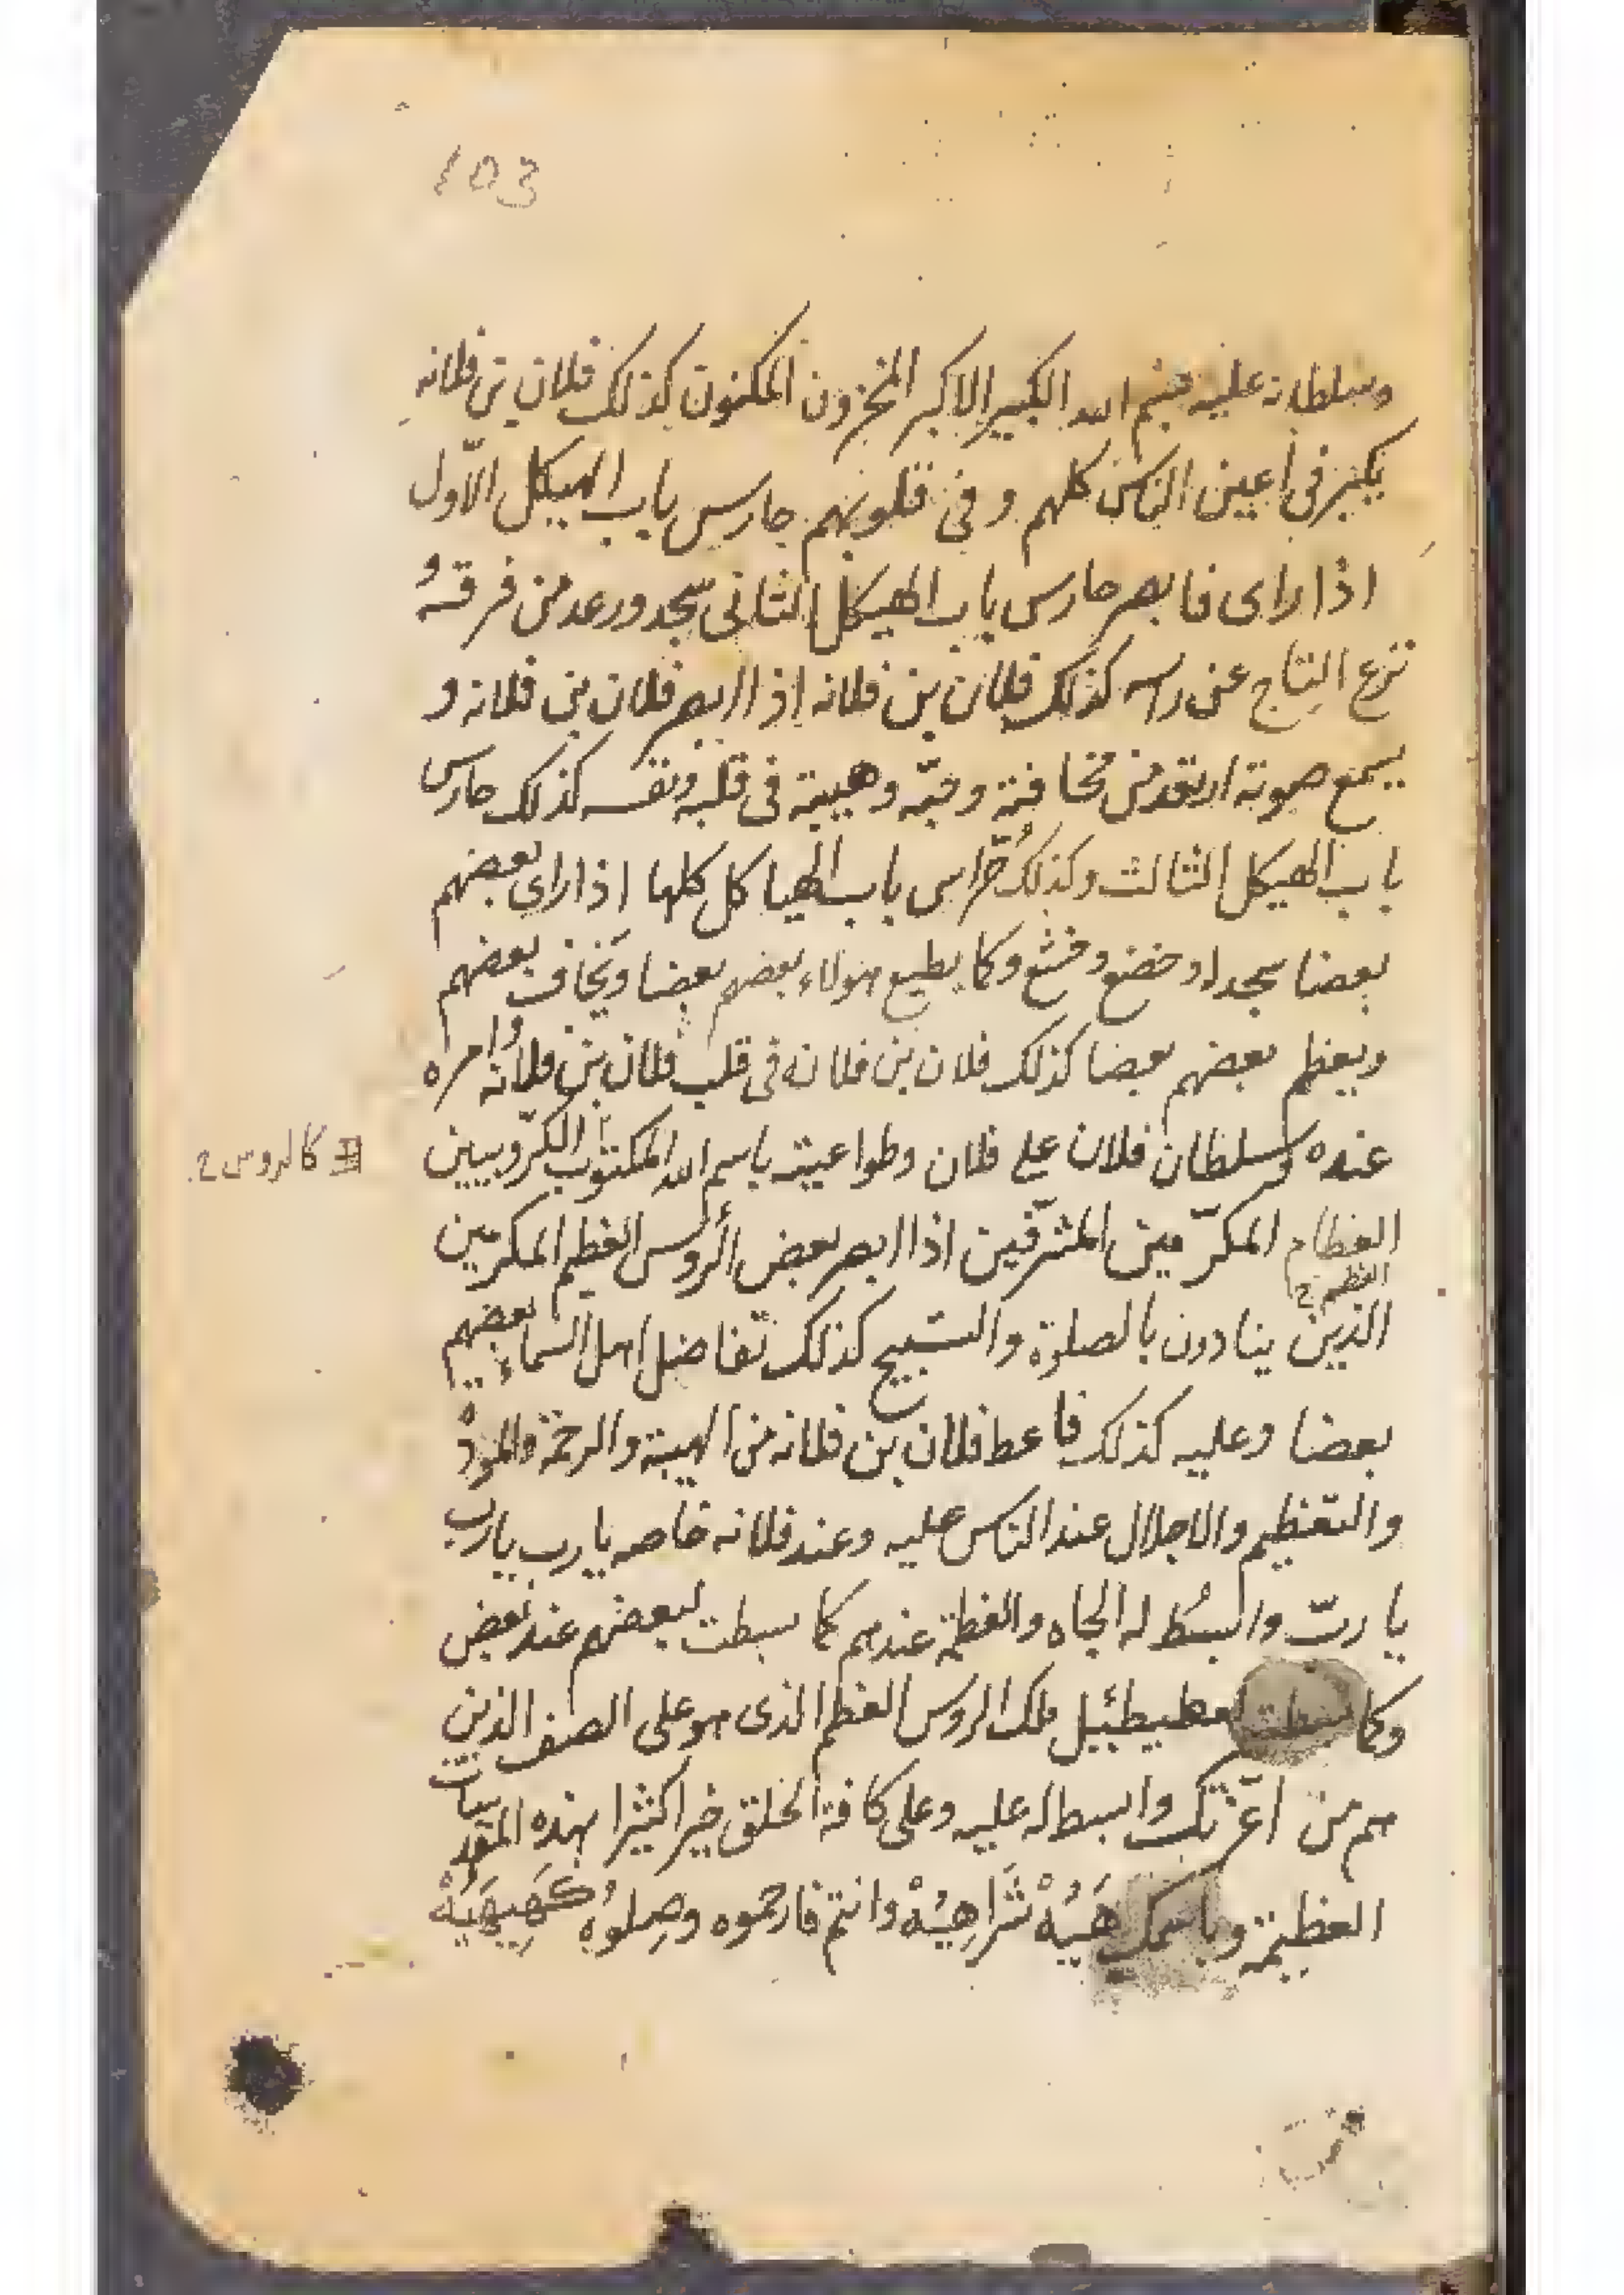 103
وسلطانه عليه بسم الله الكبير الاكبر المخزون المكنون كذلك فلان بن فلانه
يكبر فى اعين الناس كلهم وفى قلوبهم حارس باب الهيكل الاّول
اذا راى فابصر حارس باب الهيكل الثانى سجد ورعد من فرقه و
نزع التاج عن راسه كذلك فلان بن فلانه اذا ابصر فلان بن فلانه و
يسمع صوته ارتعد من مخافته وحبّه وهيبته فى قلبه ونفسه كذلك حارس
باب الهيكل الثالث وكذلك حُرّاس باب الهياكل كلها اذا راى بعضهم
بعضا سجدا وخضع وخشع وكما يطيع هولاء بعضهم بعضا ويخاف بعضهم
ويعظم بعضهم بعضا كذلك فلان بن فلانه فى قلب فلان بن فلانه وامره
عنده وسلطان فلان على فلان وطواعيته باسم الله المكتوب الكرّوبيين
كالروس ح
العظام المكرّمين المشرّفين اذا ابصر بعض الرؤس العظيم المكرمين
العظم ح
الذين ينادون بالصلوة والتسبيح كذلك تفاضل اهل السماء بعضهم
بعضا وعليه كذلك فاعط فلان بن فلانه من الهيبة والرحمة والمودة
والتعظيم والاجلال عند الناس عليه وعند فلانه خاصه يا رب يا رب
يا ربّ وابسُط له الجاه والعظمة عندهم كما بسطت لبعضهم عند بعض
وكما بسطت لعطيطئيل ملك الروس العظم الذى هو على الصنف الذين
هم من اعزتك وابسط له عليه وعلى كافة الخلق خيرا كثيرا بهذه
العظيمة وباسمك هَيُهْ شَرَاهِيُهْ وانتم فارحموه وصِلوهُ كَهِيهَيَهْ